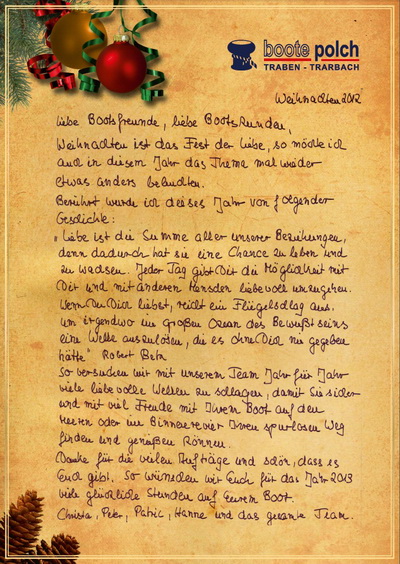 boote polch
TRABEN - TRARBACH
Weihnachten 2012
Liebe Bootsfreunde, liebe Bootskunden,
Weihnachten ist das Fest der Liebe, so möchte ich
auch in diesem Jahr das Thema mal wieder
etwas anders beleuchten.
Berührt wurde ich dieses Jahr von folgender
Geschichte:
"Liebe ist die Summe aller unserer Beziehungen,
denn dadurch hat sie eine Chance zu leben und
zu wachsen. Jeder Tag gibt Dir die Möglichkeit mit
Dir und mit anderen Menschen liebevoll umzugehen.
Wenn Du Dich liebst, reicht ein Flügelschlag aus,
um irgendwo im großen Ozean des Bewußtseins
eine Welle auszulösen, die es ohne Dich nie gegeben
hätte" Robert Betz
So versuchen wir mit unserem Team Jahr für Jahr
viele liebevolle Wellen zu schlagen, damit Sie sicher
und mit viel Freude mit Ihrem Boot auf den
Meeren oder im Binnenrevier Ihren spurlosen Weg
finden und genießen können.
Danke für die vielen Aufträge und schön, dass es
Euch gibt. So wünschen wir Euch für das Jahr 2013
viele glückliche Stunden auf Eurem Boot.
Christa, Peter, Patric, Hanne und das gesamte Team.